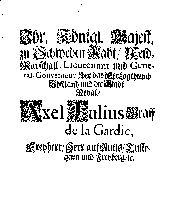 Ihr. Königl. Majest.
zu Schweden Raht, Feld-
Marschall, Lieutenant und Gene-
ral Gouverneur über das Hertzogthumb
Ehstland und die Stadt
Reval,
Axel Julius Graff
de la Gardie,
Freyherr, Herr auf
und